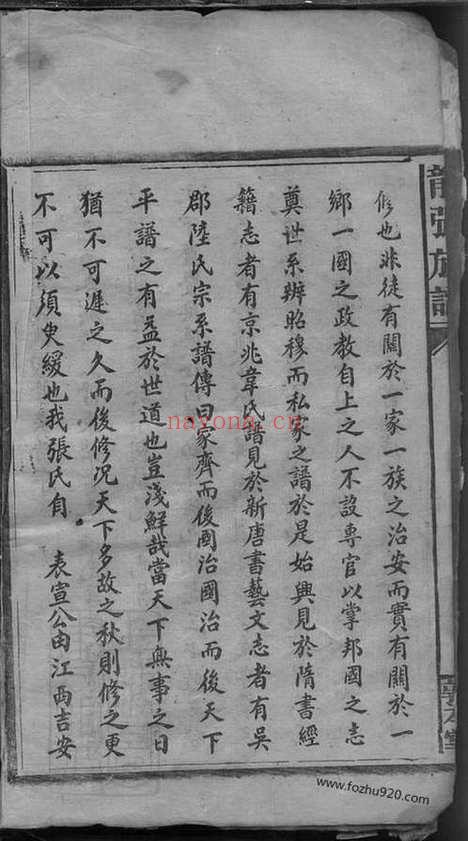 張族譜
修也非徒有關於一家一族之治安而實有關於一
鄉一國之政教自上之人不設專官以掌邦國之志
奠世系辨昭穆而私家之譜於是始興見於隋書經
籍志者有京兆韋氏譜見於新唐書藝文志者有吳
郡陸氏宗系譜傳曰家齊而後國治國治而後天下
平譜之有益於世道也豈淺鮮哉當天下無事之日
猶不可遲之久而後修况天下多故之秋則修之更
不可以須臾緩也我張氏自 表宣公由江西吉安
nayona.cn
www.fozhu920.com